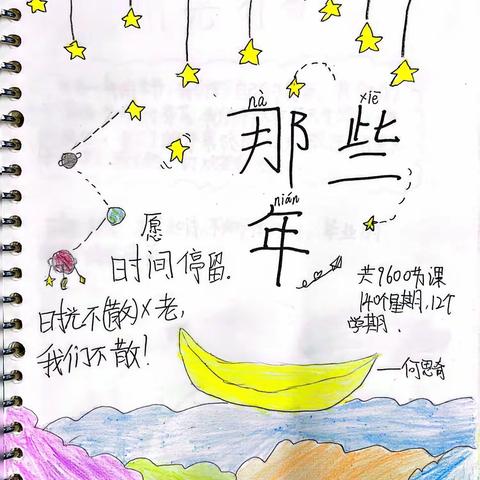 nà
xiē
那些
nián
年
愿
时间停留.
时光不(散)×老,
我们不散!
共9600节课
140个星期,12个
学期.
——何思奇